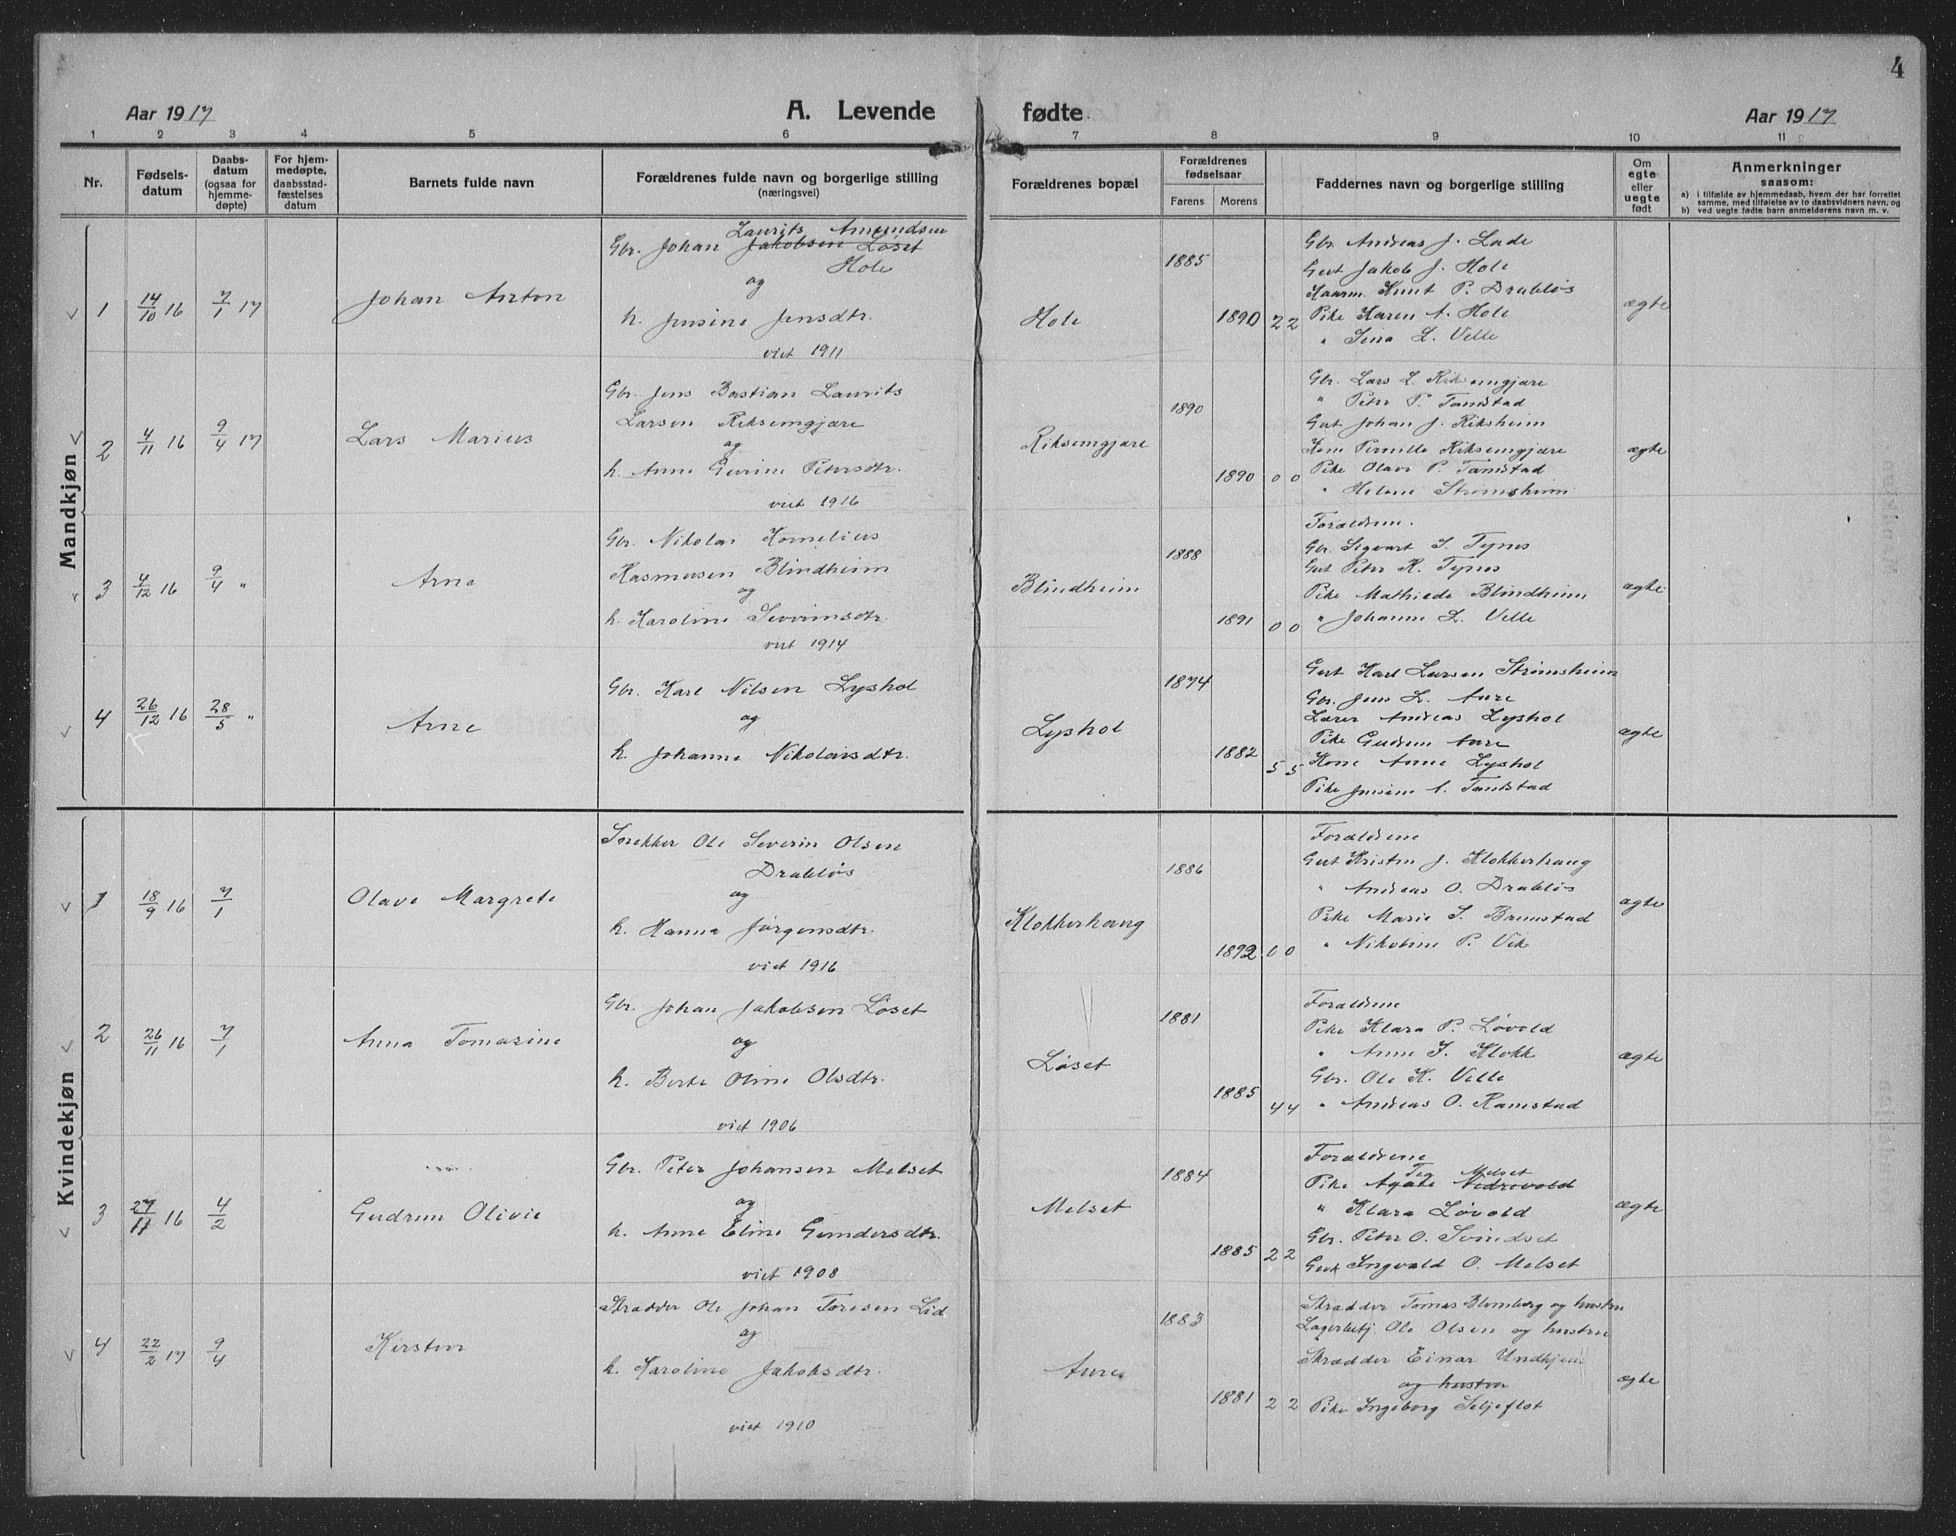 4
Aar 1917 A. Levende fødte Aar 1917
1 2 3 4 5 6 7 8 9 10 11
Nr. Fødsels-datum Daabs-datum (ogsaa for hjemme-døpte) For hjem-medøpte, daabsstad-fæstelses datum Barnets fulde navn Forældrenes fulde navn og borgerlige stilling (næringsvei) Forældrenes bopæl Forældrenes fødselsaar Farens Morens Faddernes navn og borgerlige stilling Om egte eller uegte født Anmerkninger saasom:
a) i tilfælde av hjemmedaab, hvem der har forrettet samme, med tilføielse av to daabsvidners navn, og
b) ved uegte fødte barn anmelderens navn m. v.
Mandkjøn
1 14/10 16 7/1 17 Johan Anton
Laurits Amundsen
Gbr. Johan Jakobsen Løset
Hole
og
h. Jensine Jensdtr.
viet 1911
Hole 1885 1890 2 2
Gbr. Andreas J. Lade
Gut Jakob J. Hole
Knut P. Drabløs
Pike Karen A. Hole
" Sina L. Velle
ægte
2 4/11 16 9/4 17 Lars Marius
Gbr. Jens Bastian Laurits
Larsen Riksemgjære
og
h. Anne Gurine Petersdtr.
viet 1916
Riksemgjære 1890 1890 0 0
Gbr. Lars L. Riksemgjære
" Peter P. Tandstad
Gut Johan J. Riksheim
Kone Pernille Riksemgjære
Pike Olave P. Tandstad
" Helene Strømsheim
ægte
3 4/12 16 9/4 " Arne
Gbr. Nikolai Kornelius
Rasmusen Blindheim
og
h. Karoline Severinsdtr.
viet 1914
Blindheim 1888 1891 0 0
Forældrene.
Gbr. Sigvart S. Tynes
Gut Peter K. Tynes
Pike Mathilde Blindheim
" Johanne L. Velle
ægte
4 26/12 16 28/5 " Arne
Gbr. Karl Nilsen Lyshol
og
h. Johanne Nikolaisdtr.
Lyshol 1874 1882 5 5
Gut Karl Larsen Strømsheim
Gbr. Jens L. Aure
Lærer Andreas Lyshol
Pike Gudrun Aure
Kone Anne Lyshol
Pike Jensine A. Tandstad
ægte
Kvindekjøn
1 18/9 16 7/1 Olave Margrete
Snekker Ole Severin Olsen
Drabløs
og
h. Hanna Jørgensdtr.
viet 1916
Klokkerhaug 1886 1892 0 0
Forældrene
Gut Kristen J. Klokkerhaug
" Andreas O. Drabløs
Pike Marie S. Brunstad
" Nikoline P. Vik
ægte
2 26/11 16 7/1 Anna Tomasine
Gbr. Johan Jakobsen Løset
og
h. Berte Oline Olsdtr.
viet 1906
Løset 1881 1885 4 4
Forældrene
Pike Klara P. Løvold
" Anne J. Klokk
Gbr. Ole K. Velle
" Andreas O. Ramstad
ægte
3 27/11 16 4/2 Gudrun Olivie
Gbr. Peter Johansen Melset
og
h. Anne Eline Gundersdtr.
viet 1908
Melset 1884 1885 2 2
Forældrene
Melset
Pike Agate Nedrevold
" Klara Løvold
Gbr. Peter O. Svindset
Gut Ingvald O. Melset
ægte
4 22/2 17 9/4 Kirsten
Skrædder Ole Johan Toresen Lid
og
h. Karoline Jakobsdtr.
viet 1910
Aure 1883 1881 2 2
Skrædder Tomas Blomberg og hustru
Lagerbetj. Ole Olsen og hustru
Skrædder Einar Undhjem
og hustru
Pike Ingeborg Seljeflot
ægte